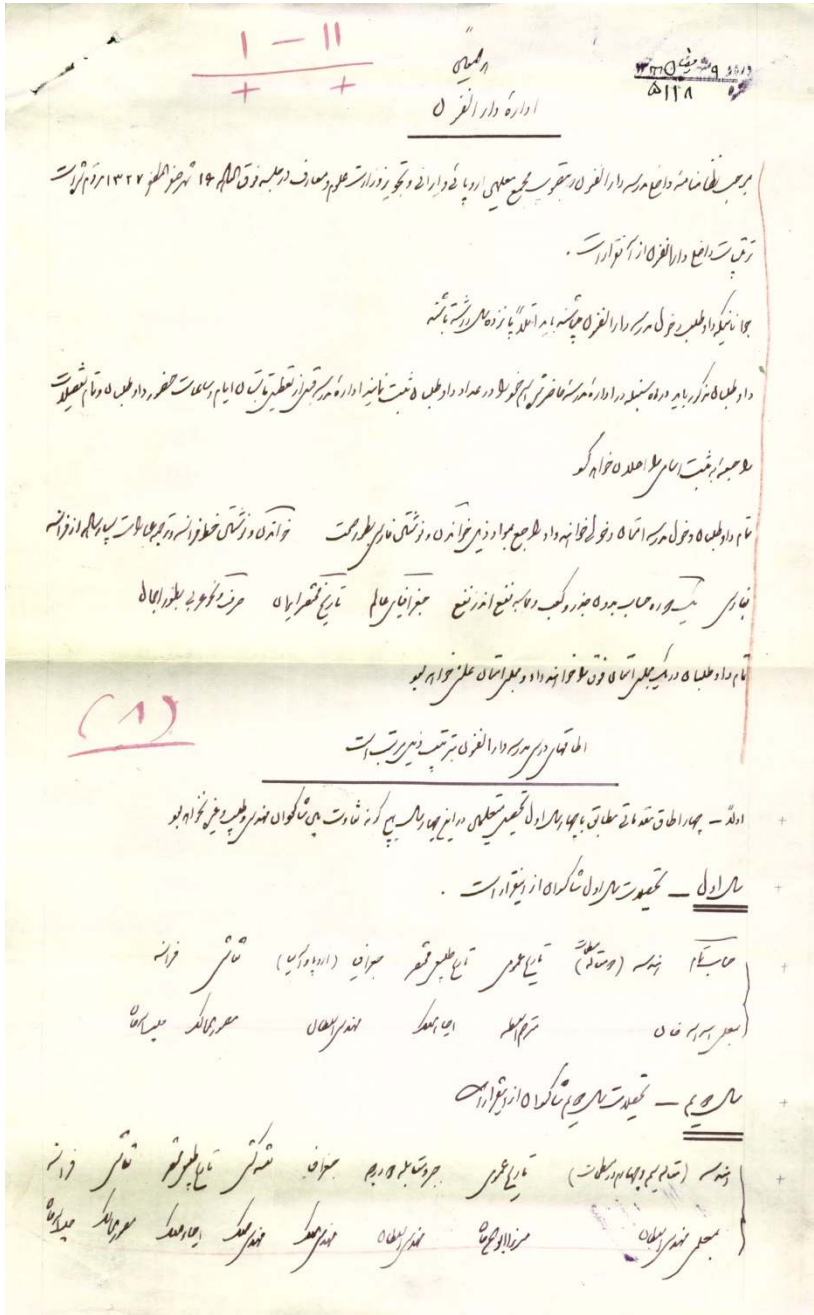 ۱ – ۱۱
+ +
۵۱۱۸
ادارهٔ دار الفنون
بر حسب نظامنامهٔ داخلی مدرسه دار الفنون و بتصویب مجمع معلمین اروپائی و ایرانی و تجویز وزارت علوم و معارف در جلسه فوق العاده ۱۴ شهر صفر المظفر ۱۳۲۷
ترتیبات داخلی دارالفنون از آنقرار است .
جوانانیکه داوطلب دخول مدرسه دار الفنون میباشند باید اقلاً پانزده سال داشته باشند
داوطلبان مذکور باید در ماه سنبله در اداره مدرسه حاضر شده اسم خود را در عداد داوطلبان ثبت نمایند اداره مدرسه قبل از تعطیل تابستان ایام و ساعات حضور داوطلبان و تمام تفصیلات
راجعه به ثبت اسامی را اعلان خواهد کرد
تمام داوطلبان دخول مدرسه امتحان دخولی خواهند داد راجع بمواد ذیل خواندن و نوشتن فارسی بطور صحت خواندن و نوشتن خط فرانسه و ترجمه عبارات بسیار ساده از فرانسه
بفارسی یک دوره حساب بدون جذر و کعب و محاسبه تنزیل جغرافیای عالم تاریخ مختصر ایران صرف و نحو عربی بطور اجمال
تمام داوطلبان در یک مجلس امتحان فوق را خواهند داد و مجلس امتحان علنی خواهد بود
(۸)
اطاقهای درس مدرسه دار الفنون بترتیب ذیل مرتب است
اولاً – چهار اطاق مقدماتی مطابق با چهار سال اول تحصیل متعلمین در این چهار سال هیچ گونه تفاوت بین شاگردان مهندس و طبیب و غیره نخواهد بود
سال اول – تحصیلات سال اول شاگردان از اینقرار است .
حساب تمام هندسه تاریخ عمومی تاریخ طبیعی مختصر جغرافیا (اروپا و آسیا) نقاشی فرانسه
مترجم السلطنه احیاء الملک مهندس السلطان مصور الممالک
سال دویم – تحصیلات سال دویم شاگردان از اینقرار است
هندسه (مقاله سیم و چهارم در سطحات) تاریخ عمومی جبر و مقابله درجه جغرافیا نقشه کشی تاریخ طبیعی مختصر نقاشی فرانسه
معلمین مهندس السلطان میرزا ابوالحسن خان مهندس السلطان مهندس الملک مهندس الملک احیاء الملک مصور الممالک